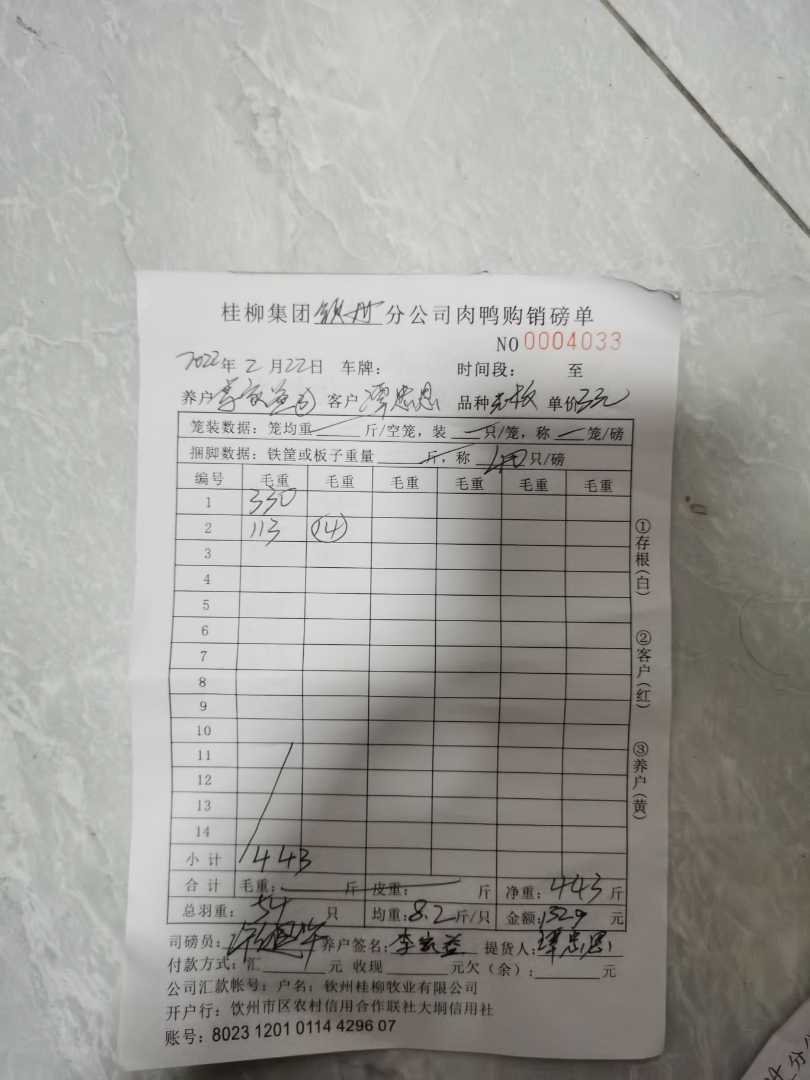 桂柳集团钦州分公司肉鸭购销磅单
NO 0004033
2022年2月22日 车牌: 时间段: 至
养户 客户 谭忠恩 品种 单价3元
笼装数据: 笼均重 斤/空笼, 装 只/笼, 称 笼/磅
捆脚数据: 铁筐或板子重量 斤, 称 40只/磅
编号 毛重 毛重 毛重 毛重 毛重 毛重
1 330
2 113 14
3
4
5
6
7
8
9
10
11
12
13
14
小计 443
合计 毛重: 斤 皮重: 斤 净重: 443斤
总羽重: 54 只 均重: 8.2斤/只 金额: 1329 元
司磅员: 养户签名: 李家益 提货人: 谭忠恩
付款方式: 汇 元 收现 元欠(余): 元
公司汇款帐号: 户名: 钦州桂柳牧业有限公司
开户行: 钦州市区农村信用合作联社大垌信用社
账号: 8023 1201 0114 4296 07
①存根(白)
②客户(红)
③养户(黄)